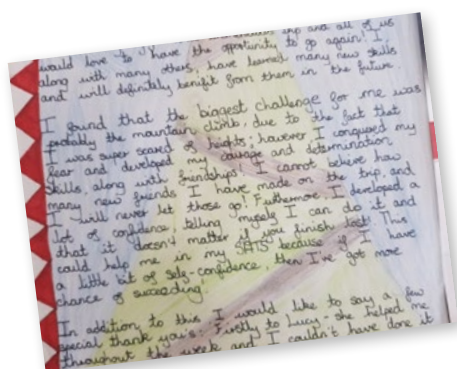 trip and all of us
would love to have the opportunity to go again! I,
along with many others, have learned many new skills
and will definitely benifit from them in the future.
I found that the biggest challenge for me was
probably the mountain climb, due to the fact that
I was super scared of heights; however I conquored my
fear and developed my courage and determination
skills, along with friendships. I cannot believe how
many new friends I have made on the trip, and
I will never let those go! Futhermore I developed a
lot of confidence telling myself I can do it and
that it doesn't matter if you finish last! This
could help me in my SATS because if I have
a little bit of self-confidence, then I've got more
chance of succeeding!
In addition to this I would like to say a few
special thank you's. Firstly to Lucy - she helped me
throughout the week and I couldn't have done it